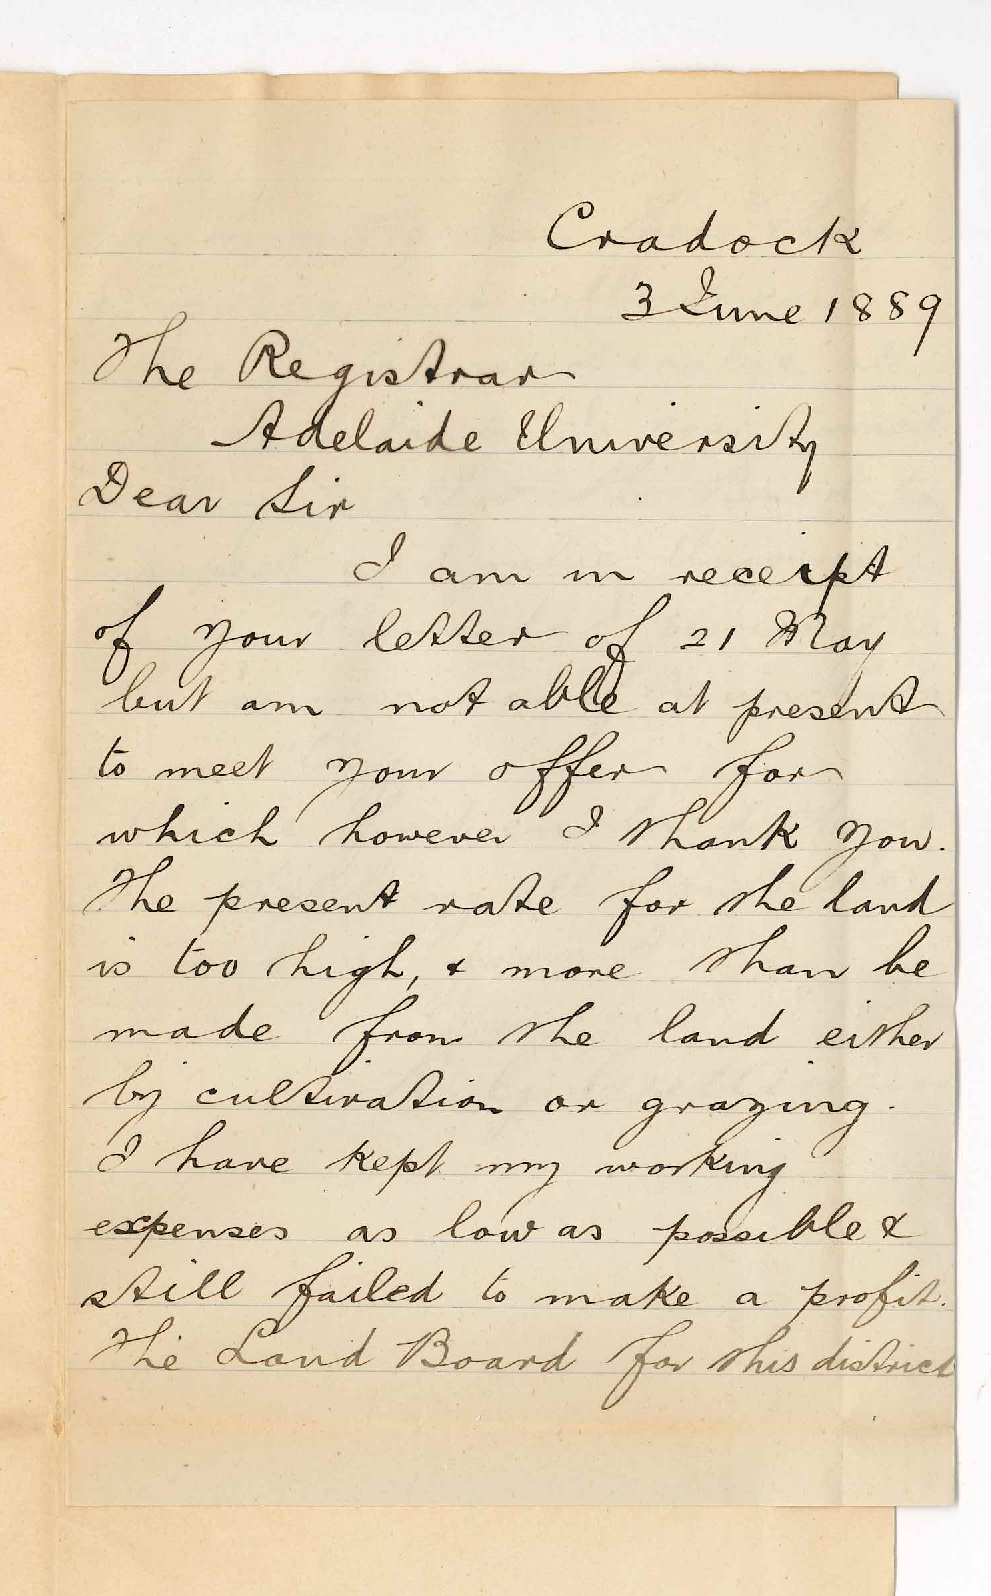 Cradock
3 June 1889
The Registrar
Adelaide University
Dear Sir
I am in receipt
of your letter of 21 May
but am not able at present
to meet your offer for
which however I thank you.
The present rate for the land
is too high, & more than be
made from the land either
by cultivation or grazing.
I have kept my working
expenses as low as possible &
still failed to make a profit.
The Land Board for this district